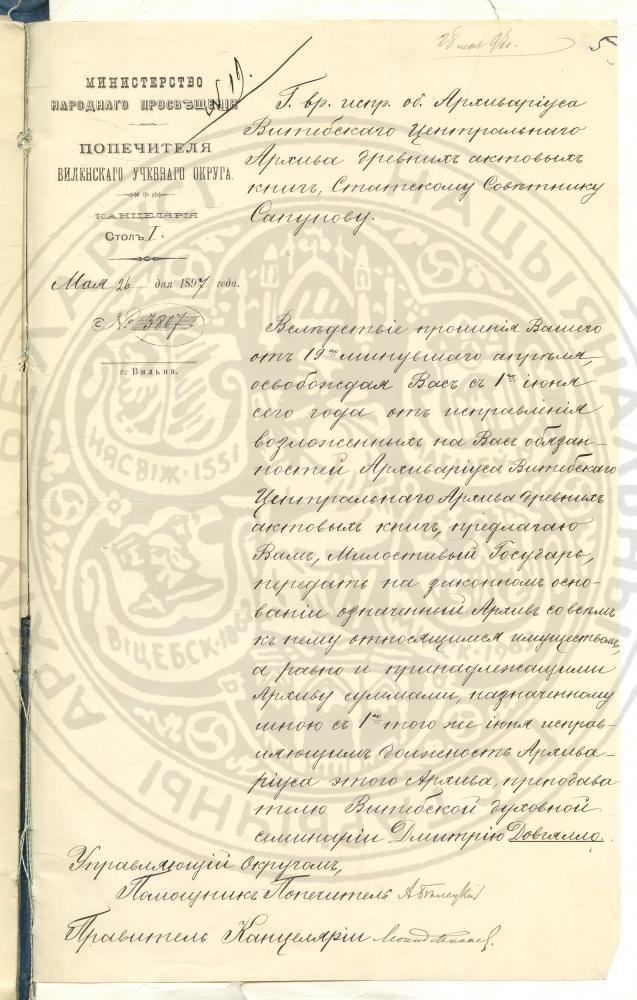 28 мая 97 г.
5
№ 19.
МИНИСТЕРСТВО
НАРОДНАГО ПРОСВѢЩЕНІЯ
ПОПЕЧИТЕЛЯ
ВИЛЕНСКАГО УЧЕБНАГО ОКРУГА.
КАНЦЕЛЯРІЯ
Столъ I.
Мая 26 дня 1897 года.
№ 3807
г. Вильна.
Г. вр. испр. об. Архиваріуса
Витебскаго Центральнаго
Архива древнихъ актовыхъ
книгъ, Статскому Совѣтнику
Сапунову.
Вслѣдствіе прошенія Вашего
отъ 19го минувшаго апрѣля,
освобождая Васъ съ 1го іюня
сего года отъ исправленія
возложенныхъ на Васъ обязан-
ностей Архиваріуса Витебскаго
Центральнаго Архива древнихъ
актовыхъ книгъ, предлагаю
Вамъ, Милостивый Государь,
передать на законномъ осно-
ваніи означенный Архивъ со всѣмъ
къ нему относящимся имуществомъ,
а равно и принадлежащими
Архиву суммами, назначенному
мною съ 1го того же іюня исправ-
ляющимъ должность Архива-
ріуса этого Архива, преподава-
телю Витебской духовной
семинаріи Дмитрію Довгялло.
Управляющій Округомъ,
Помощникъ Попечителя А Бѣлецкій
Правитель Канцеляріи
НЯСВІЖ·1551
ВІЦЕБСК·